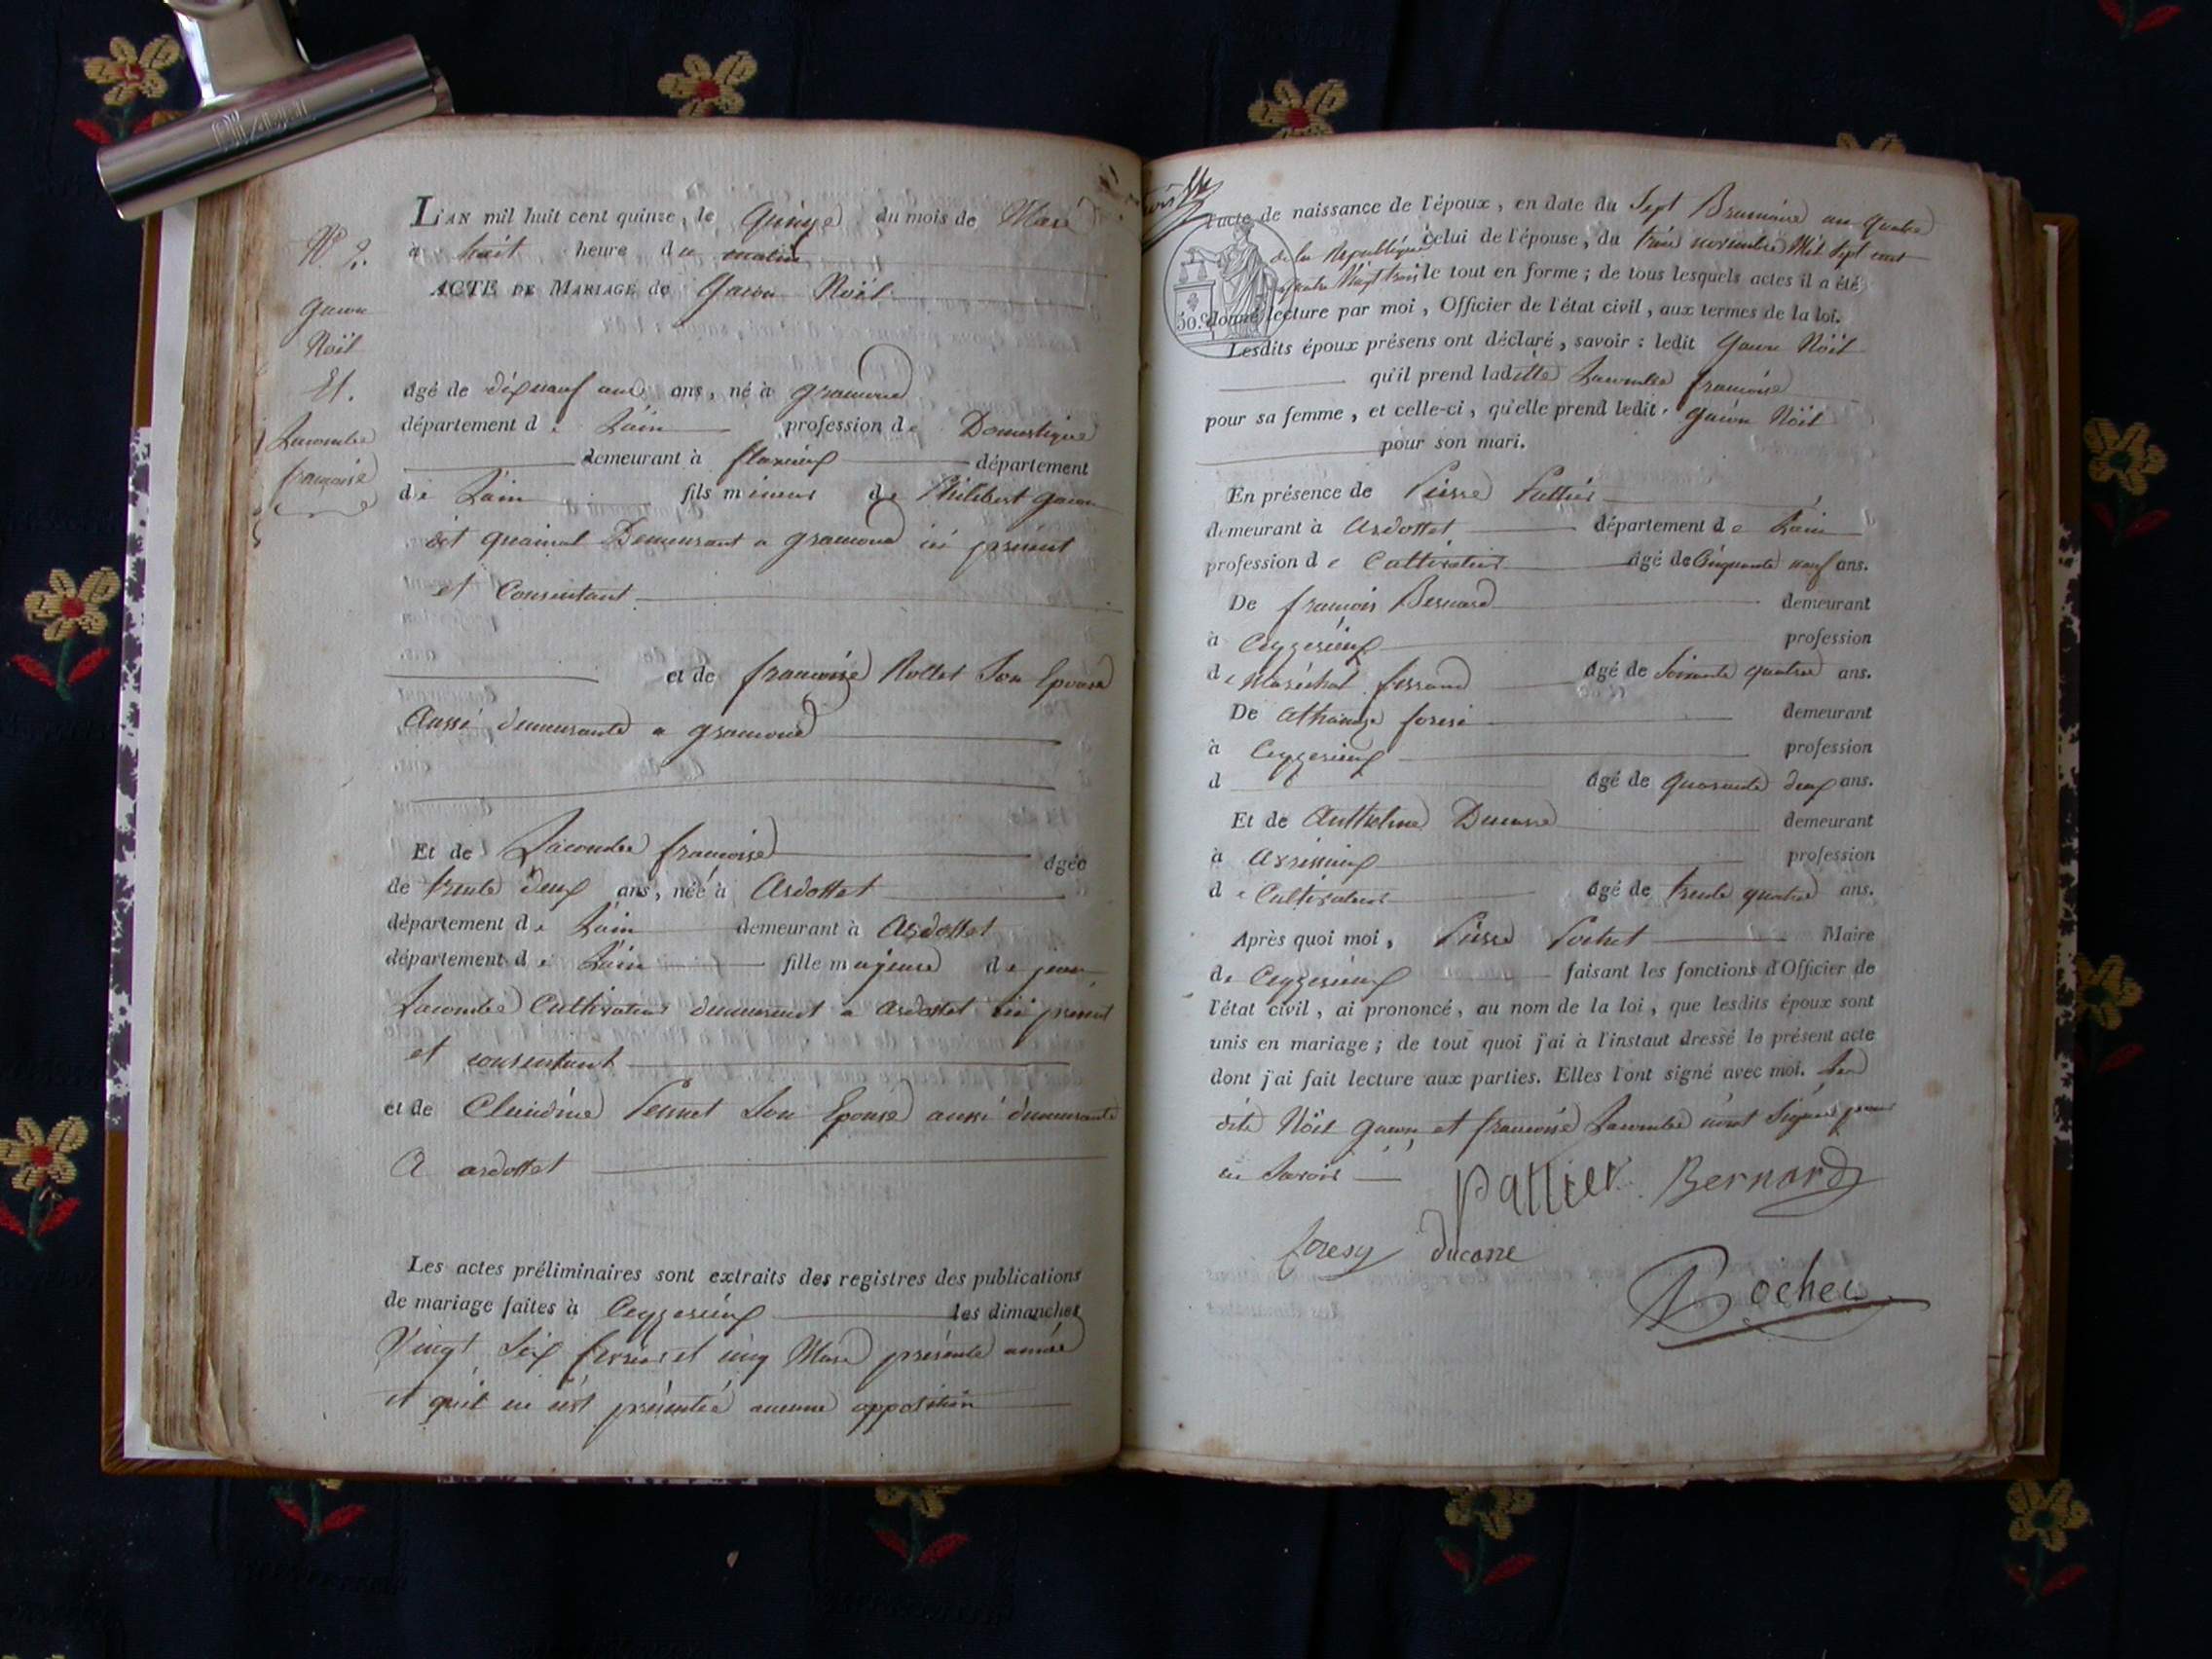 N° 2.
Gacon
Noël
Et.
Lacombe
françoise
L'AN mil huit cent quinze, le Quinze du mois de Mars
à huit heure du matin
ACTE DE MARIAGE de Gacon Noël
âgé de dixneuf ans ans, né à gramond
département de Lain profession de Domestique
demeurant à flaxieux département
de Lain fils mineur de Philibert gacon
dit quainal Demeurant a gramond ici présent
et Consentant
et de françoise Rollet Son Epouse
Aussi demeurante a gramond
Et de Lacombe françoise âgée
de trente deux ans, née à Ardosset
département de Lain demeurant à Ardosset
département de Lain fille majeure de jean
Lacombe Cultivateur demeurant a Ardosset ici présent
et consentant
et de Claudine Pernet Son Epouse aussi demeurante
A ardosset
Les actes préliminaires sont extraits des registres des publications
de mariage faites à Ceyzerieux les dimanches
Vingt Six fevrier et cinq Mars présente année
et qu'il ne s'est présentée aucune opposition
l'acte de naissance de l'époux, en date du Sept Brumaire an quatre
de la République celui de l'épouse, du treize novembre Mil Sept cent
quatre Vingt trois le tout en forme; de tous lesquels actes il a été
50.c donné lecture par moi, Officier de l'état civil, aux termes de la loi.
Lesdits époux présens ont déclaré, savoir: ledit Gacon Noël
qu'il prend laditte Lacombe françoise
pour sa femme, et celle-ci, qu'elle prend ledit gacon Noël
pour son mari.
En présence de Pierre Pattier
demeurant à Ardosset département de Lain
profession de Cultivateur âgé de Cinquante neuf ans.
De françois Bernard demeurant
à Ceyzerieux profession
de Maréchal ferrand âgé de Soixante quatre ans.
De Athanaze foresi demeurant
à Ceyzerieux profession
d âgé de quarante deux ans.
Et de Anthelme Ducarre demeurant
à Avrissieux profession
de Cultivateur âgé de trente quatre ans.
Après quoi moi, Pierre Pochet Maire
de Ceyzerieux faisant les fonctions d'Officier de
l'état civil, ai prononcé, au nom de la loi, que lesdits époux sont
unis en mariage; de tout quoi j'ai à l'instant dressé le présent acte
dont j'ai fait lecture aux parties. Elles l'ont signé avec moi. Les
dits Noël gacon et françoise Lacombe n'ont Signés pour
ne Savoir Pattier Bernard
foresy ducarre
Pochet